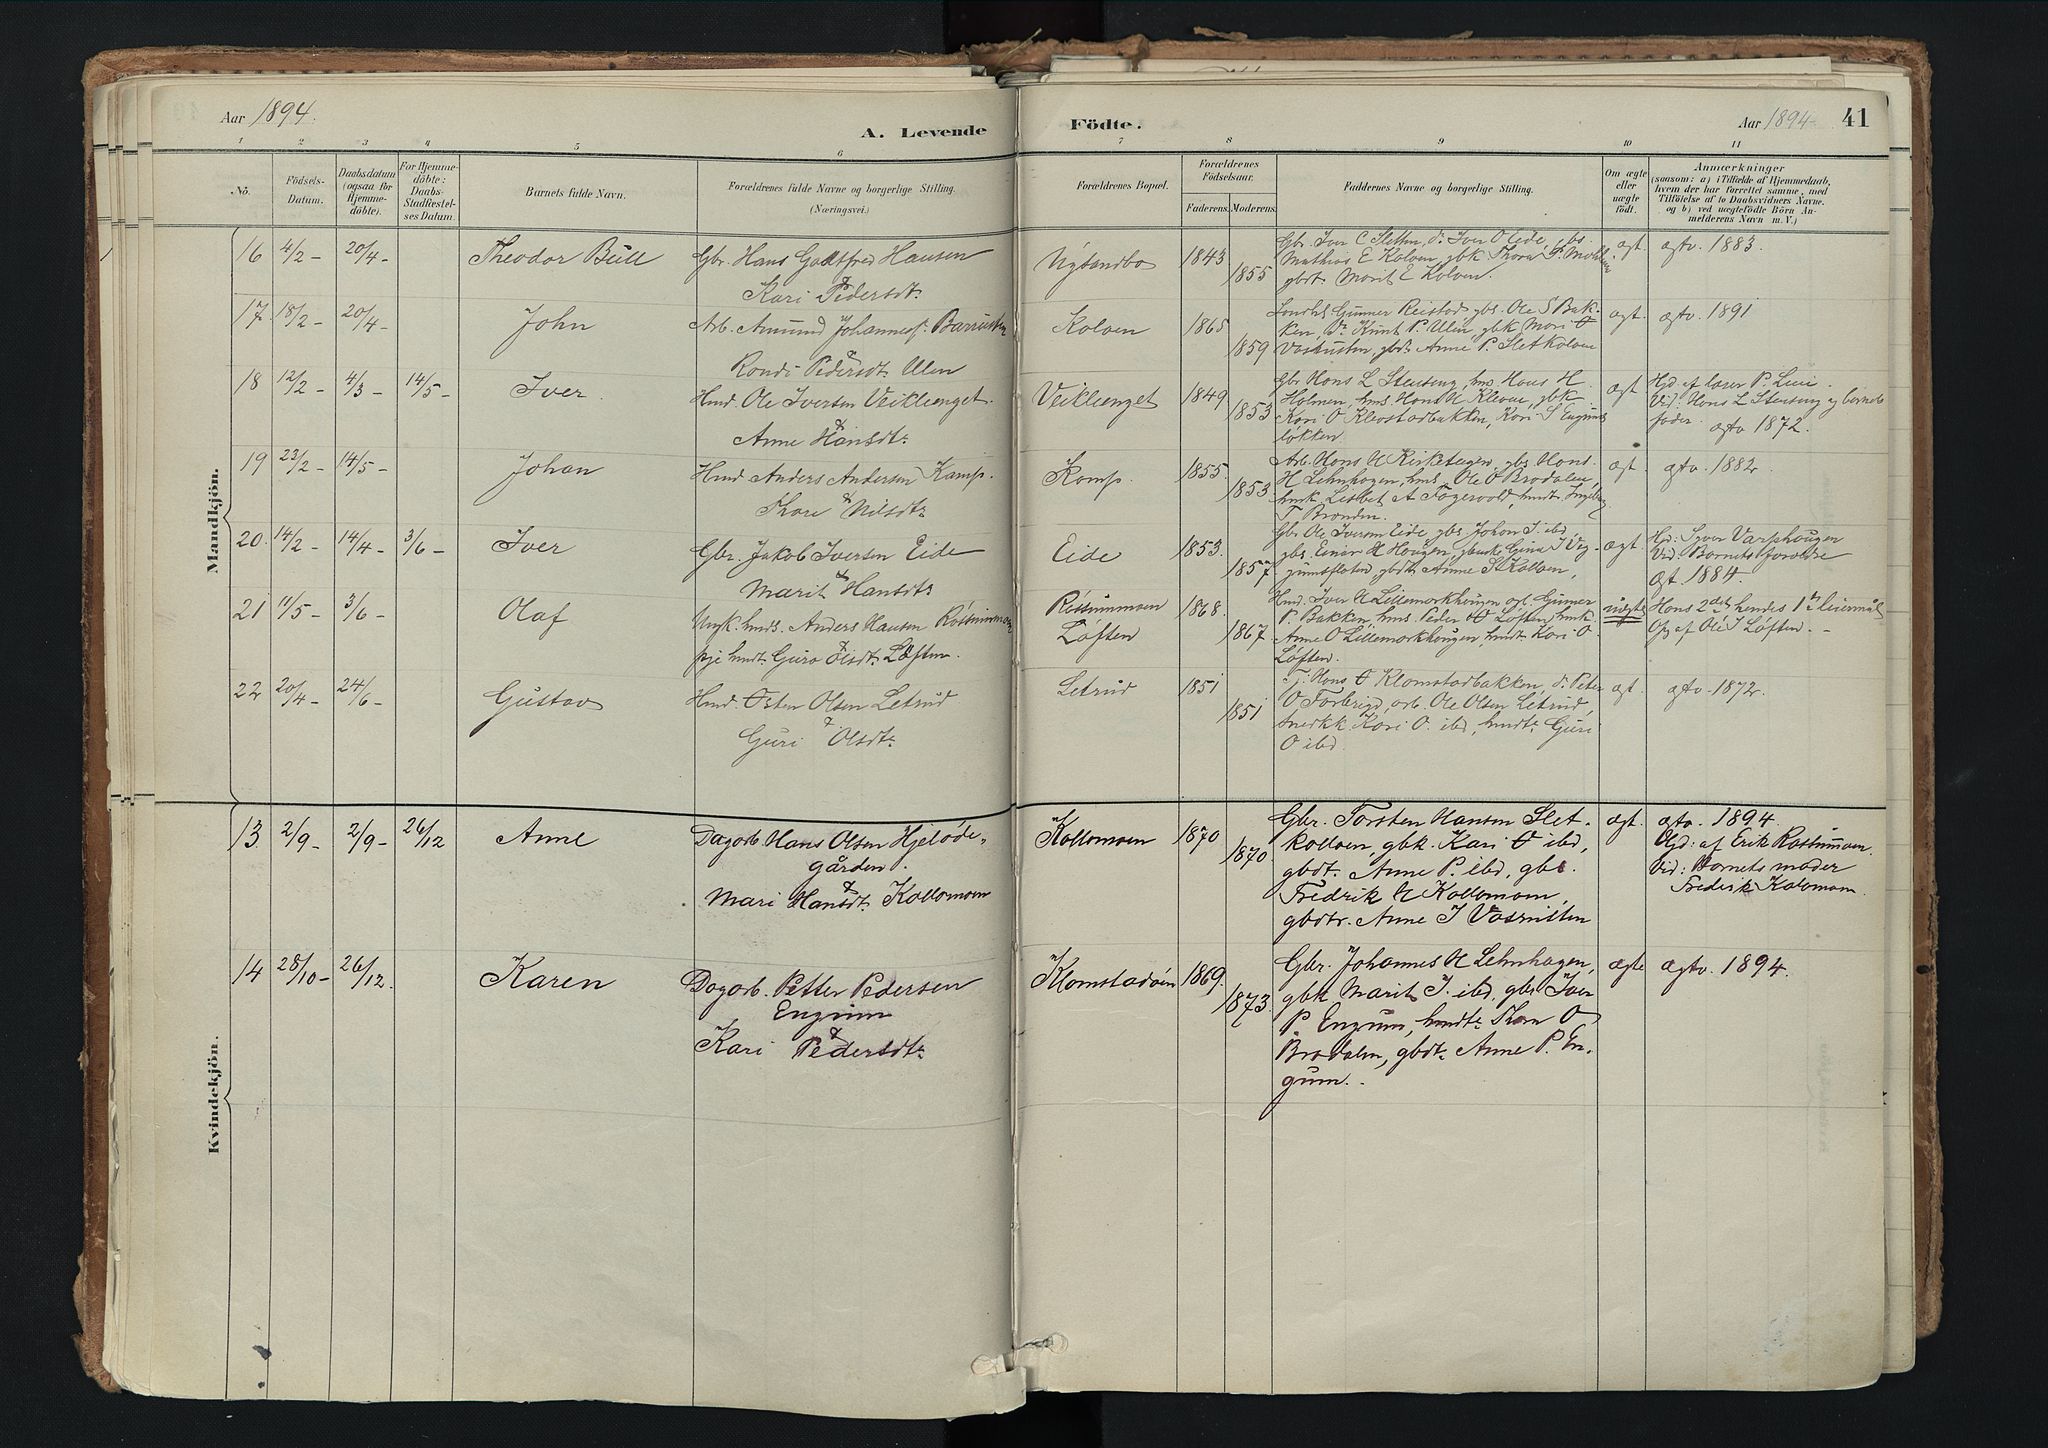 Aar 1894.
A. Levende
Födte.
Aar 1894
41
1 2 3 4 5 6 7 8 9 10 11
Nö.
Födsels-
Datum.
Daabsdatum
(ogsaa for
Hjemme-
döbte).
For Hjemme-
döbte:
Daabs-
Stadfæstel-
ses Datum.
Barnets fulde Navn.
Forældrenes fulde Navne og borgerlige Stilling.
(Næringsvei.)
Forældrenes Bopæl.
Forældrenes
Födselsaar.
Faderens. Moderens.
Faddernes Navne og borgerlige Stilling.
Om ægte
eller
uægte
födt.
Anmærkninger
(saasom: a) i Tilfælde af Hjemmedaab,
hvem der har forrettet samme, med
Tilföielse af to Daabsvidners Navne.
og b) ved uægtefödte Börn An-
melderens Navn m. V.)
Mandkjön.
16 4/2 - 20/4 - Theodor Bull
Gbr. Hans Godtfred Hansen
&
Kari Pedersdt.
Nysandbo 1843
1855
Gbr. Iver C Sletten, do Iver O Eide, gbs.
Mathias E Kolven, gbk Thora P. Mohlen
gbdt. Marit E Kolven.
ægt. ægtv. 1883.
17. 18/2 - 20/4 - John
Arb. Amund Johanness.
&
Rondi Pedersdt. Ulen
Kolven 1865
1859
Gunner Reistad gbs. Ole S Bak-
ken, do Knut P. Ulen, gbk Mari O
gbdt. Anne P. Sletkolven
ægt. ægtv. 1891
18 12/2 - 4/3 - 14/5 - Iver.
Hmd. Ole Iversen Veiklenget.
&
Anne Hansdt.
Veiklenget 1849
1853
Gbr Hans L Stenseng, hms Hans H.
Holmen, hms Hans H Kleven, gbk
Kari O Klevstadbakken, Kari S Engums
løkken.
ægt
Hjd. af lærer P. Lien.
Vid: Hans L Stenseng og barnets
fader. ægtv 1872.
19 23/2 - 14/5 - Johan
Hmd Anders Andersen Kamp.
&
Thore Nilsdt.
Kamp. 1855.
1853
Arb. Hans H Kirketeigen, gbs Hans
H Lehnhagen, hms. Ole O Brodalen,
hmk Lisbet A Fogervold, hmdt Ingeborg
T Branden.
ægt. ægtv. 1882.
20. 14/2 - 14/4 - 3/6 - Iver
Gbr. Jakob Iversen Eide
&
Marit Hansdt.
Eide 1853.
1857
Gbr Ole Iversen Eide gbs. Johan I ibd
gbs. Einar H Hougen, gbuk Gina I Vig-
gumsfloten gbdt. Anne S Kolven,
ægt.
Hjd: Syver Varphougen
Vid: Barnets foreldre
ægt. 1884.
21 11/5 - 3/6 - Olaf
Ungk. hmds. Anders Hansen Røssummoen
&
pije hmdt. Guro Olsdt. Løften.
Røssummoen
Løften
1868.
1867
Hmd. Iver H Lillemorkhougen, Gunner
P. Bakken, hms. Peder O Løften, hmk.
Anne O Lillemorkhougen, hmdt. Kari O
Løften.
uægte
Hans 2det hendes 1ste leiermål
Opg af Ole I Løften. -
22 20/4 - 24/6 - Gustav
Hmd. Østen Olsen Letrud
&
Guri Olsdt.
Letrud 1851
1851
Hans O Klomstadbakken, d. Peter
O Forbrigd, arb. Ole Olsen Letrud,
snedkk Kari O. ibd, hmdt. Guri
O ibd.
ægt. ægtv. 1872.
Kvindekjön.
13 2/9 - 2/9 - 26/12 Anne
Dagarb. Hans Olsen Hjeløde-
gården.
&
Mari Hansdt. Kollomoen
Kollomoen 1870
1870
Gbr. Torsten Hansen Slet-
kolven, gbk. Kari O ibd,
gbdt. Anne P. ibd, gbs.
Fredrik H Kollomoen,
gbdtr. Anne I
ægt.
ægtv. 1894.
Hjd: af Erik Rossumoen.
Vid: Barnets moder
Frederik Kolomoen.
14 28/10 - 26/12. Karen
Dagarb. Petter Pedersen
Engum
&
Kari Pedersdt.
Klomstadøien 1869.
1873.
Gbr. Johannes H Lehnhagen,
gbk Marit I. ibd, gbs Iver
P. Engum, hmdt. Thora O
Brodalen, gbdt. Anne P. En-
gum. -
ægte ægtv. 1894.